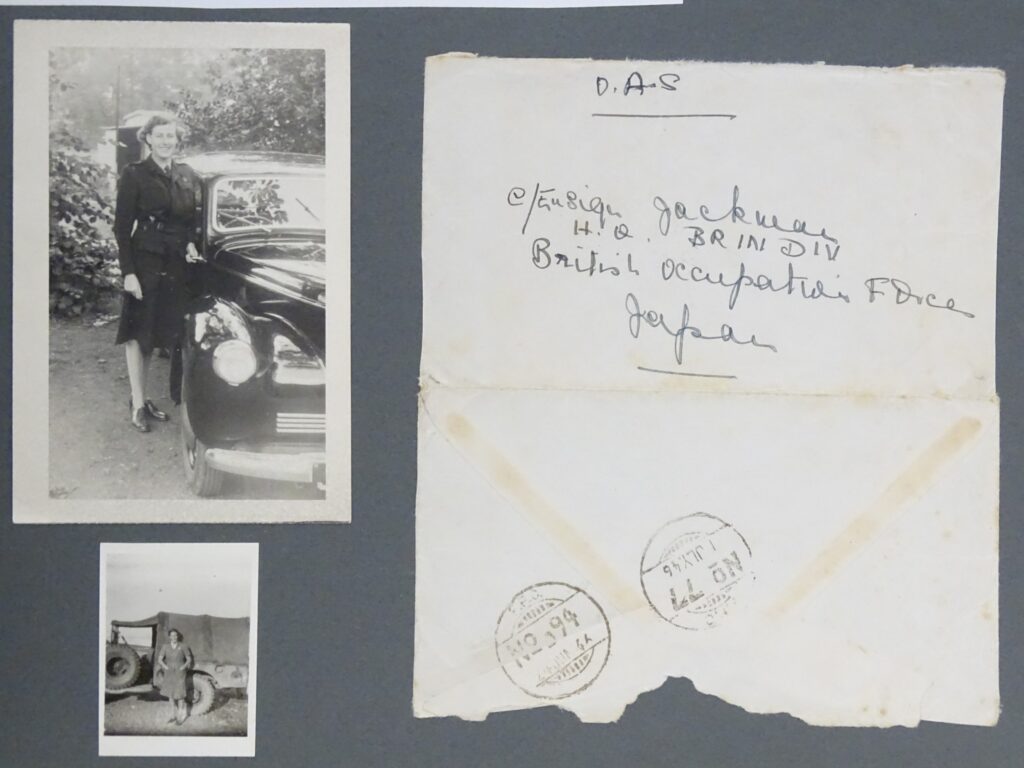 O.A.S
C/Ensign Jackman
H.Q. BR IN DIV
British Occupation Force
Japan
NO 77
1 JLY.46
NO 94